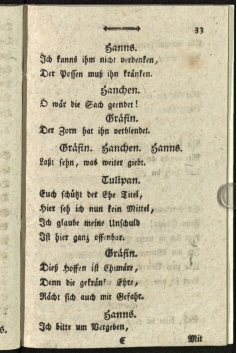 33
Hanns.
Ich kanns ihm nicht verdenken,
Der Possen muß ihn kränken.
Hanchen.
O wär die Sach geendet!
Gräfin.
Der Zorn hat ihn verblendet.
Gräfin. Hanchen. Hanns.
Laßt sehn, was weiter giebt.
Tulipan.
Euch schützt der Ehe Titel,
Hier seh ich nun kein Mittel,
Ich glaube meine Unschuld
Ist hier ganz offenbar.
Gräfin.
Dieß Hoffen ist Chimäre,
Denn die gekränkte Ehre,
Rächt sich auch mit Gefahr.
Hanns.
Ich bitte um Vergeben,
C
Mit